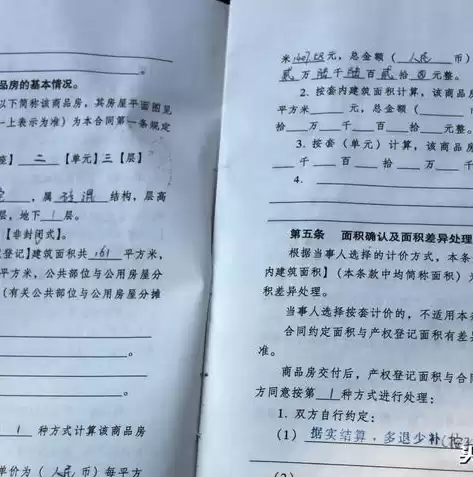 品房的基本情况。
以下简称该商品房，其房屋平面图见
一上表示为准）为本合同第一条规定
座】二【单元】三【层】
，属 砼混 结构，层高
层，地下 1 层。
【非封闭式】。
登记】建筑面积共 161 平方米，
平方米，公共部位与公用房屋分
（有关公共部位与公用房屋分摊
。
。
1 种方式计算该商品房
单价为（人民币）每平方
米1407.58元，总金额（人民 币）
贰万陆千陆百贰拾四元整。
2. 按套内建筑面积计算，该商品房
平方米 元，总金额（
拾 万 千 百 拾 元整。
3. 按套（单元）计算，该商品房
千 百 拾 万 千
4.
第五条 面积确认及面积差异处理
根据当事人选择的计价方式，本条
内建筑面积】（本条款中均简称面积）为
积差异处理。
当事人选择按套计价的，不适用本
合同约定面积与产权登记面积有差
准。
商品房交付后，产权登记面积与合同
方同意按第 1 种方式进行处理：
1. 双方自行约定：
（1）据实结算，多退少补（按